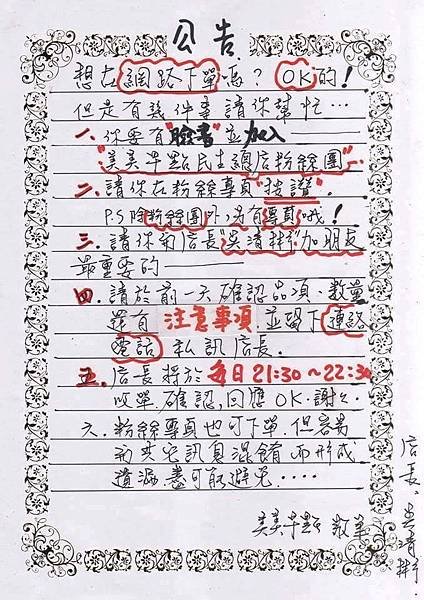 公告
想在網路下單嗎？OK的！
但是有幾件事請你幫忙…
一、你要有"臉書"並加入
"美美早點民生總店粉絲團"
二、請你在粉絲專頁"按讚"
P.S 除粉絲團外，還有專頁哦！
三、請你和店長"吳清"加朋友
最重要的——
四、請於前一天確認品項、數量
還有 注意事項 並留下連絡
電話 私訊店長.
五、店長將於每日21:30～22:30
收單、確認，回應OK.謝々
六、粉絲專頁也可下單，但容易
和其他訊息混餚而形成
遺漏，盡可能避免....
美美早點 敬筆
店長: